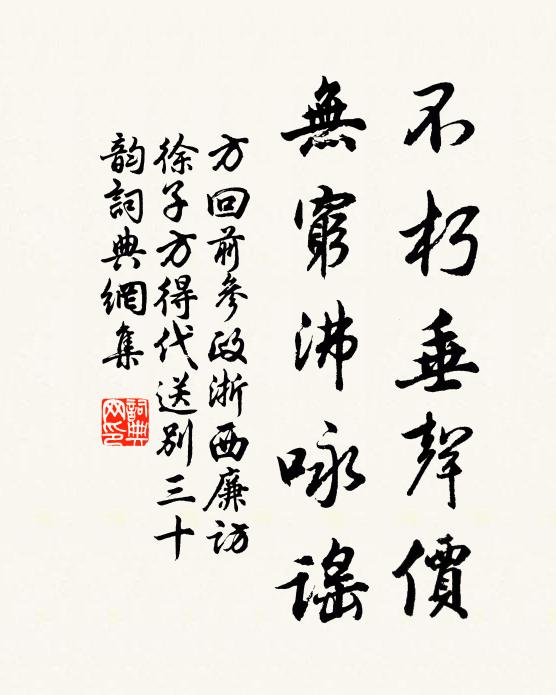 不朽垂聲價
無窮沸咏謡
方回前參政浙西廉訪
徐子方得代送別三十
韵詞典網集
詞典
网印